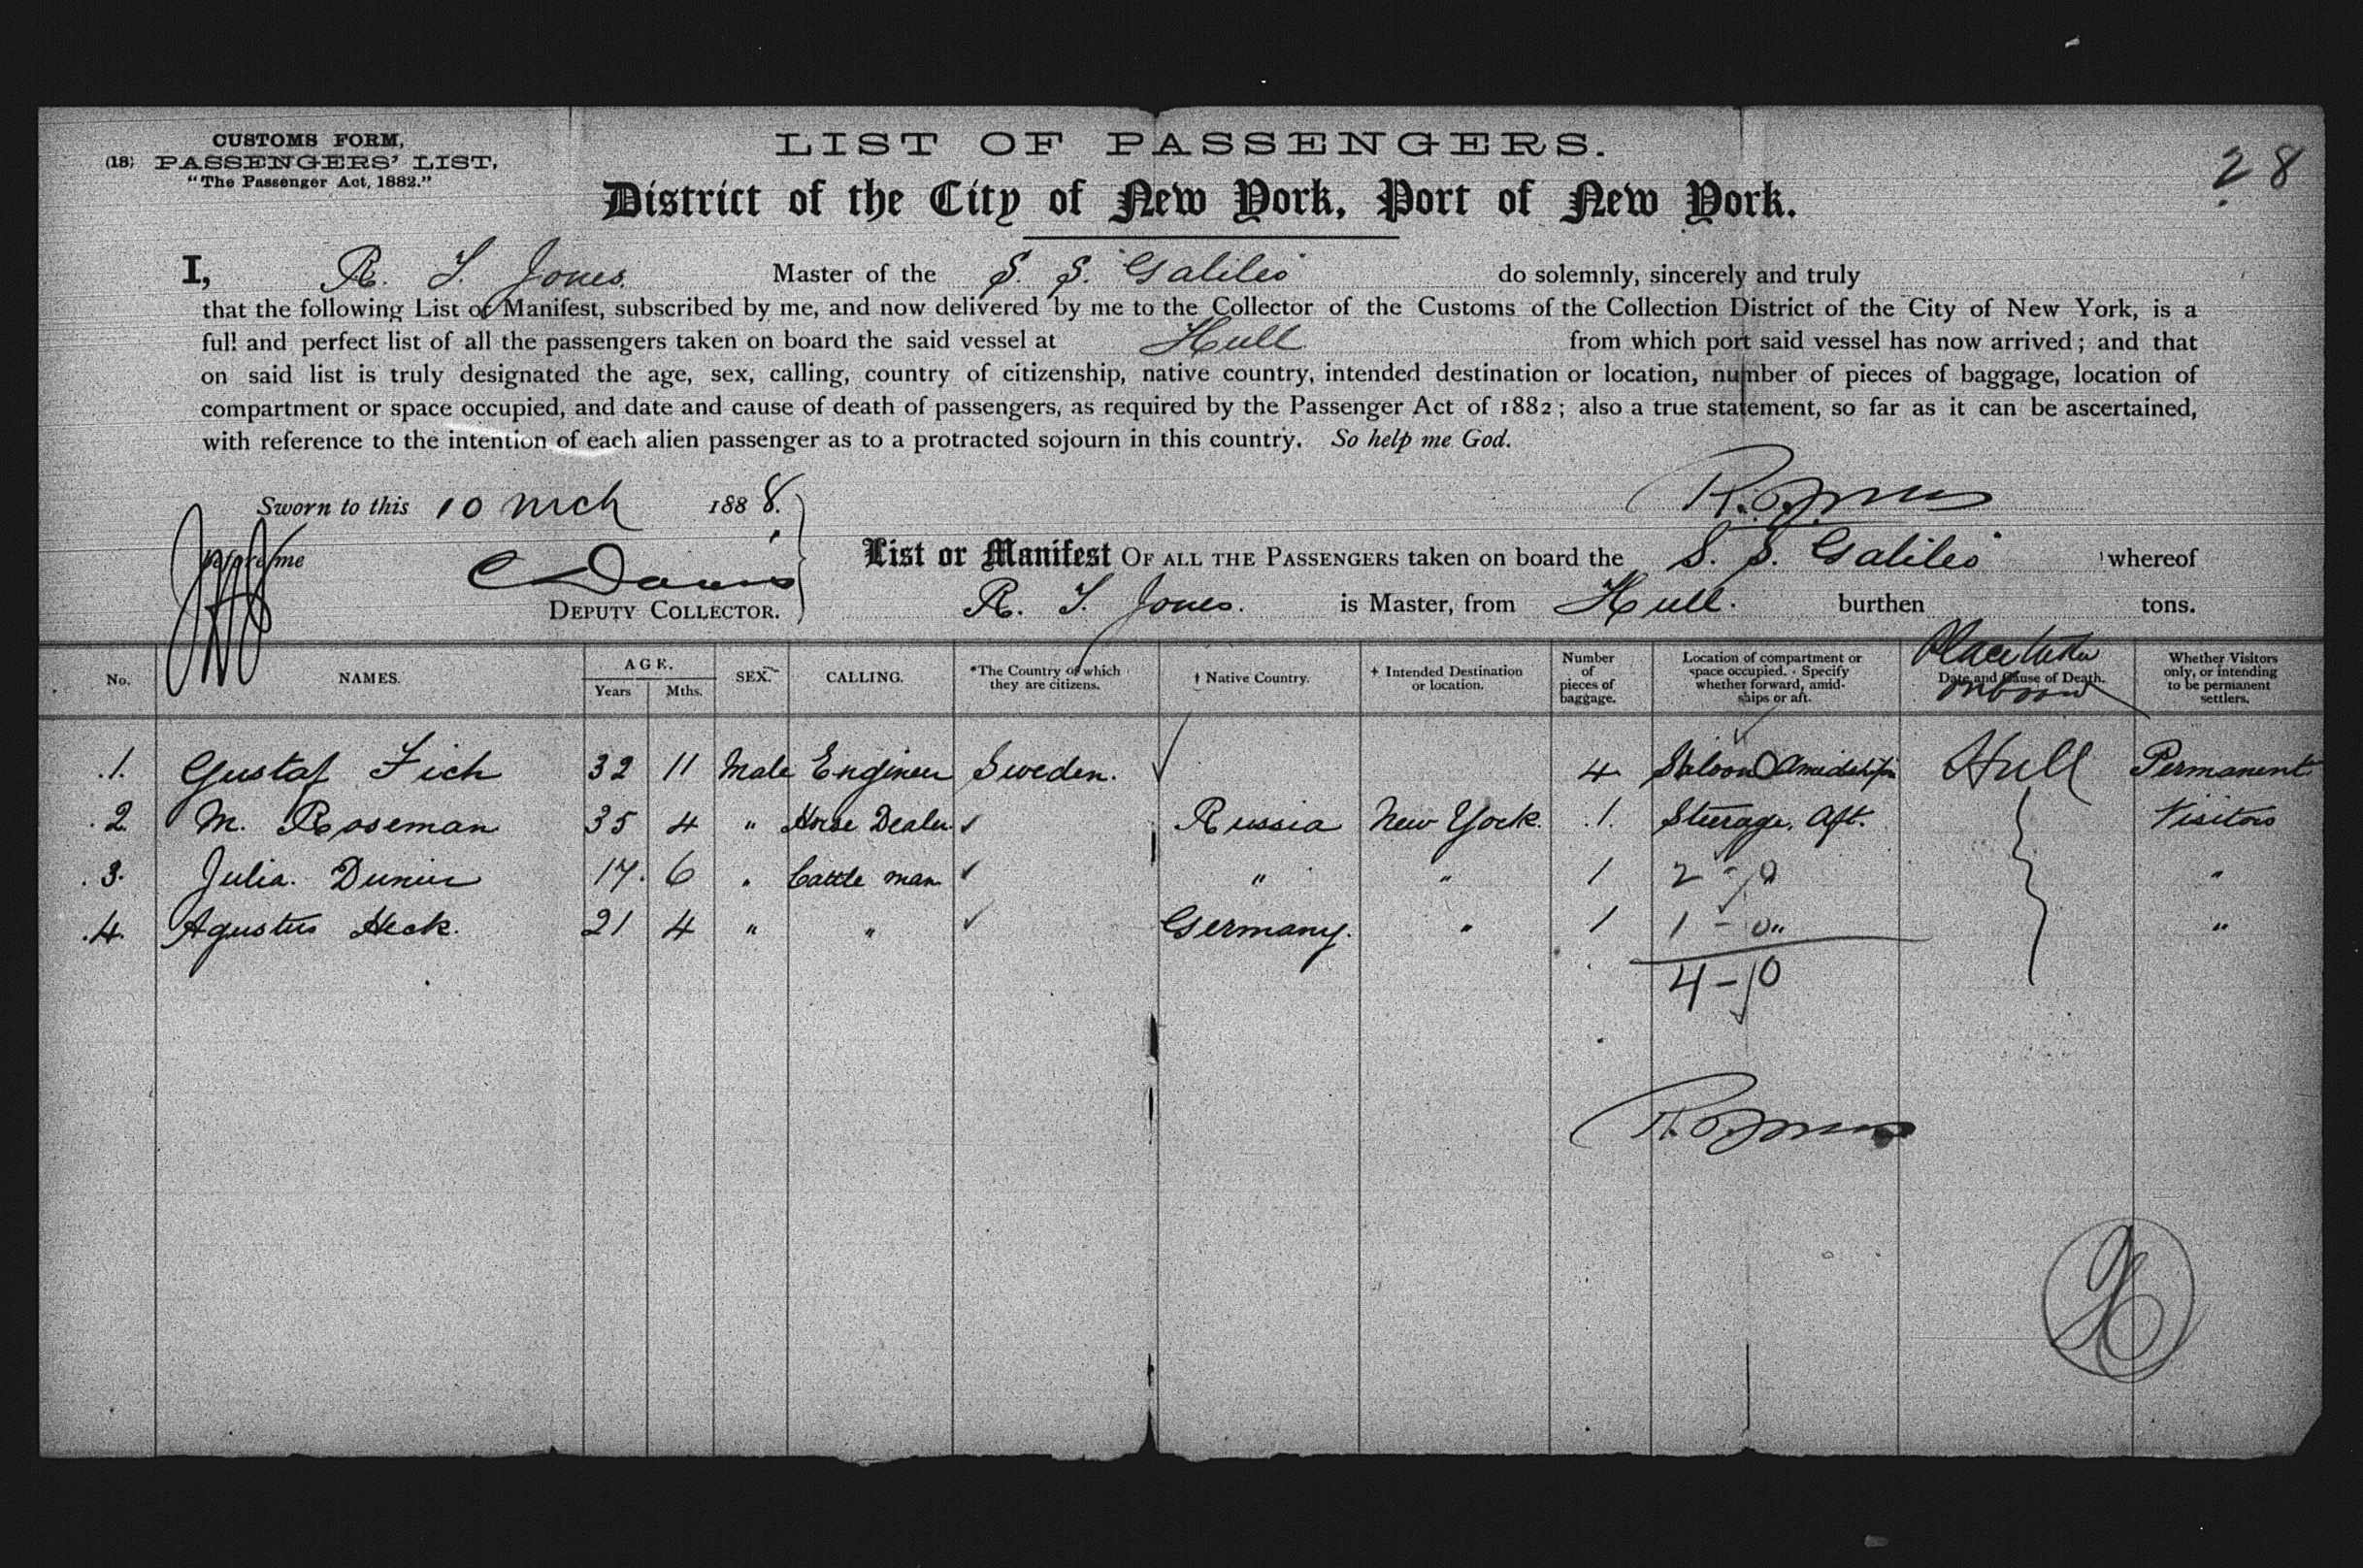 CUSTOMS FORM,
(18) PASSENGERS' LIST,
"The Passenger Act, 1882."
LIST OF PASSENGERS.
28
District of the City of New York, Port of New York.
I, R. T. Jones. Master of the S. S. Galileo do solemnly, sincerely and truly
that the following List or Manifest, subscribed by me, and now delivered by me to the Collector of the Customs of the Collection District of the City of New York, is a
full and perfect list of all the passengers taken on board the said vessel at Hull from which port said vessel has now arrived; and that
on said list is truly designated the age, sex, calling, country of citizenship, native country, intended destination or location, number of pieces of baggage, location of
compartment or space occupied, and date and cause of death of passengers, as required by the Passenger Act of 1882; also a true statement, so far as it can be ascertained,
with reference to the intention of each alien passenger as to a protracted sojourn in this country. So help me God.
Sworn to this 10 Mch 1888.
before me
DEPUTY COLLECTOR.
List or Manifest OF ALL THE PASSENGERS taken on board the S. S. Galileo whereof
R. T. Jones. is Master, from Hull. burthen tons.
No. NAMES. AGE. Years Mths. SEX. CALLING. *The Country of which they are citizens. † Native Country. + Intended Destination or location. Number of pieces of baggage. Location of compartment or space occupied. Specify whether forward, amidships or aft. Date and Cause of Death. Whether Visitors only, or intending to be permanent settlers.
.1. Gustaf Fich 32 11 Male Engineer Sweden. 4. Saloon Amidships Hull Permanent
.2. M. Roseman 35 4 " Horse Dealer. Russia New York. .1. Steerage, Aft. Visitors
.3. Julia. 17. 6 " Cattle man " " 1 2 "
.4. Agustus Heck. 21 4 " " Germany. " 1 1 "
4